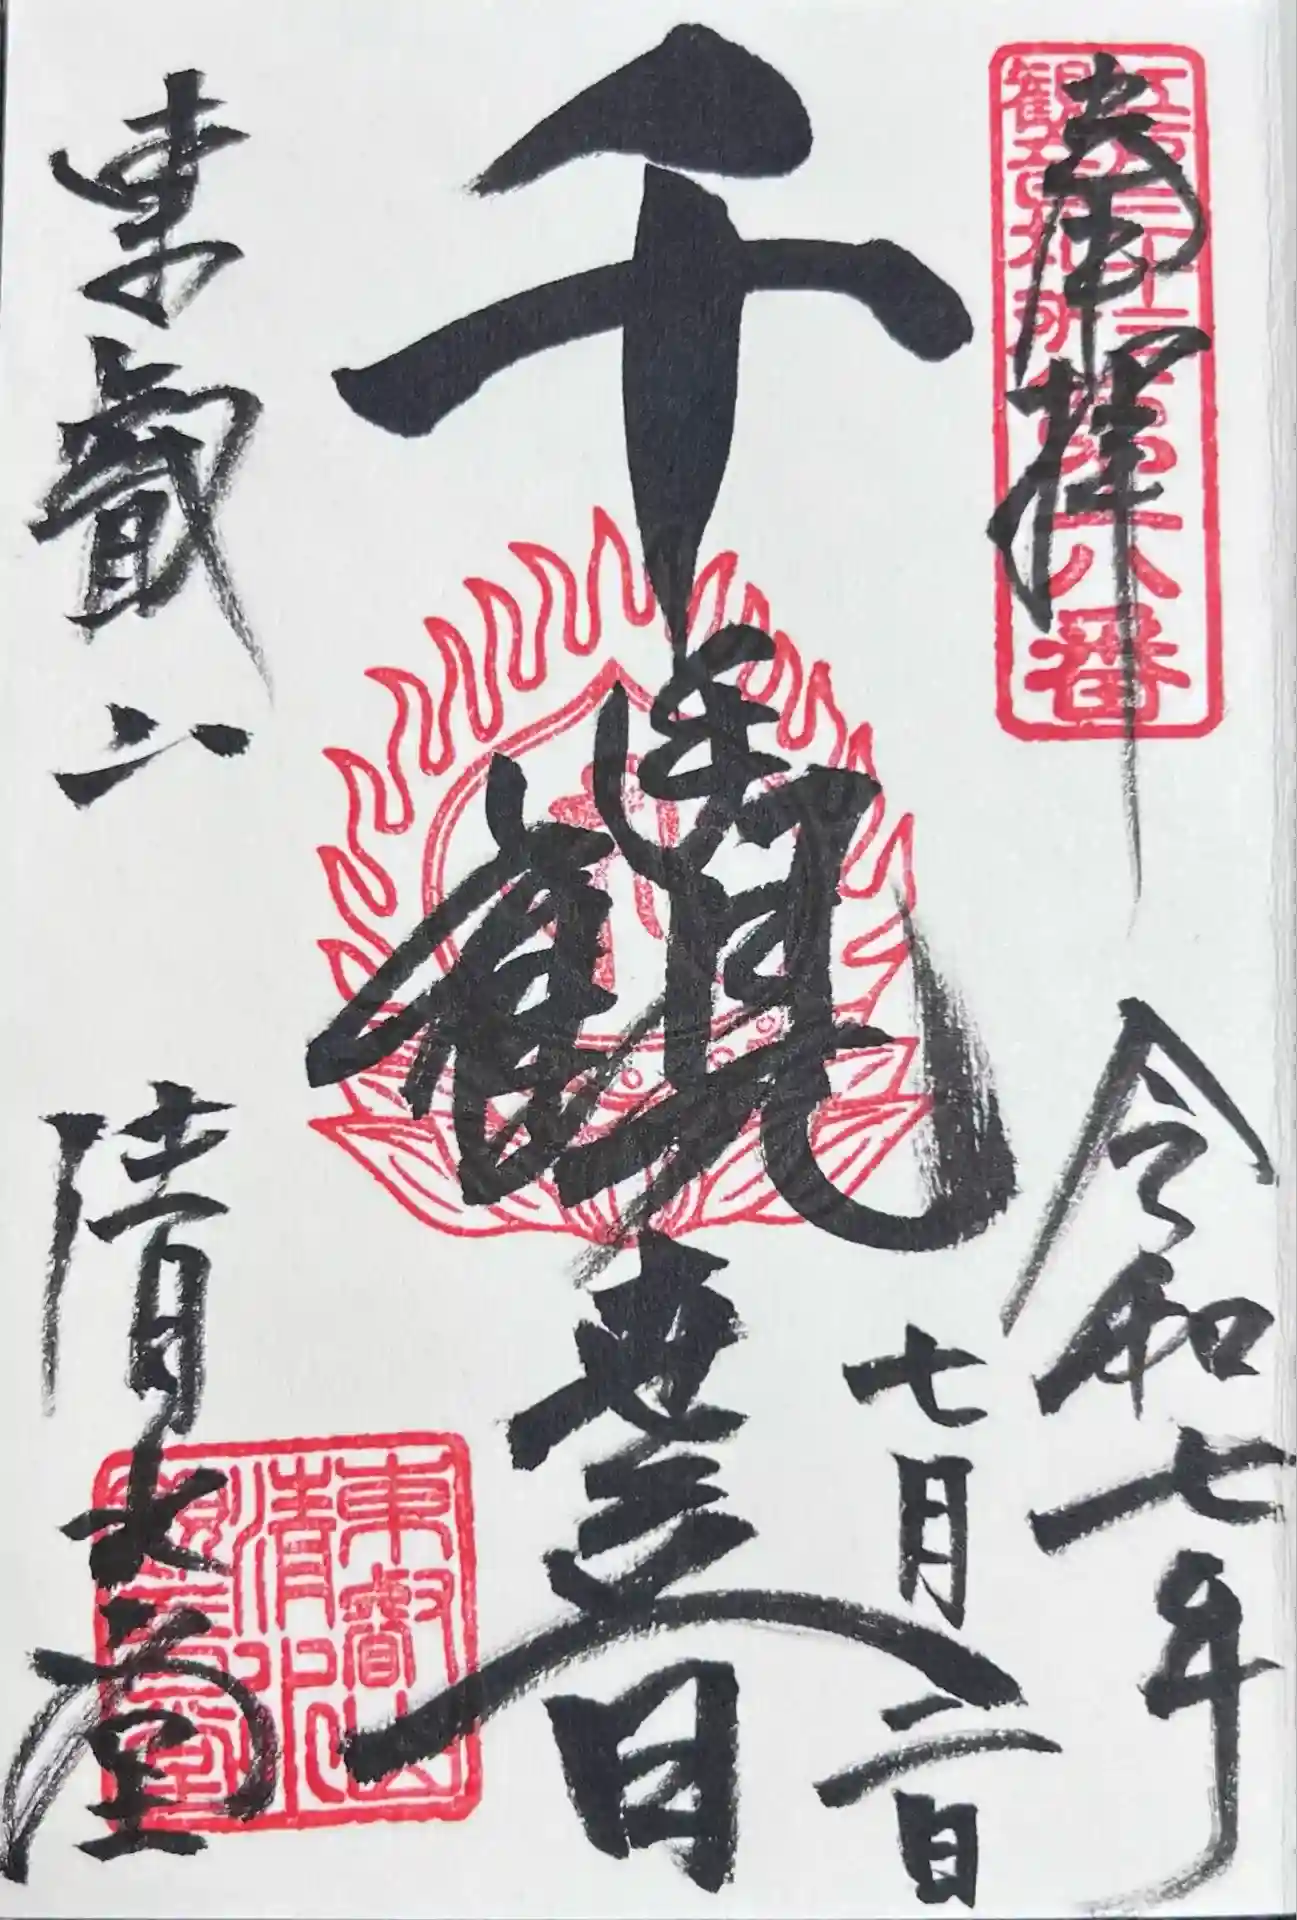 奉拝
江戸三十三
観音札所
第六番
令和七年
七月二日
千手観世音
東叡山
清水堂
東叡山
清水
観音堂